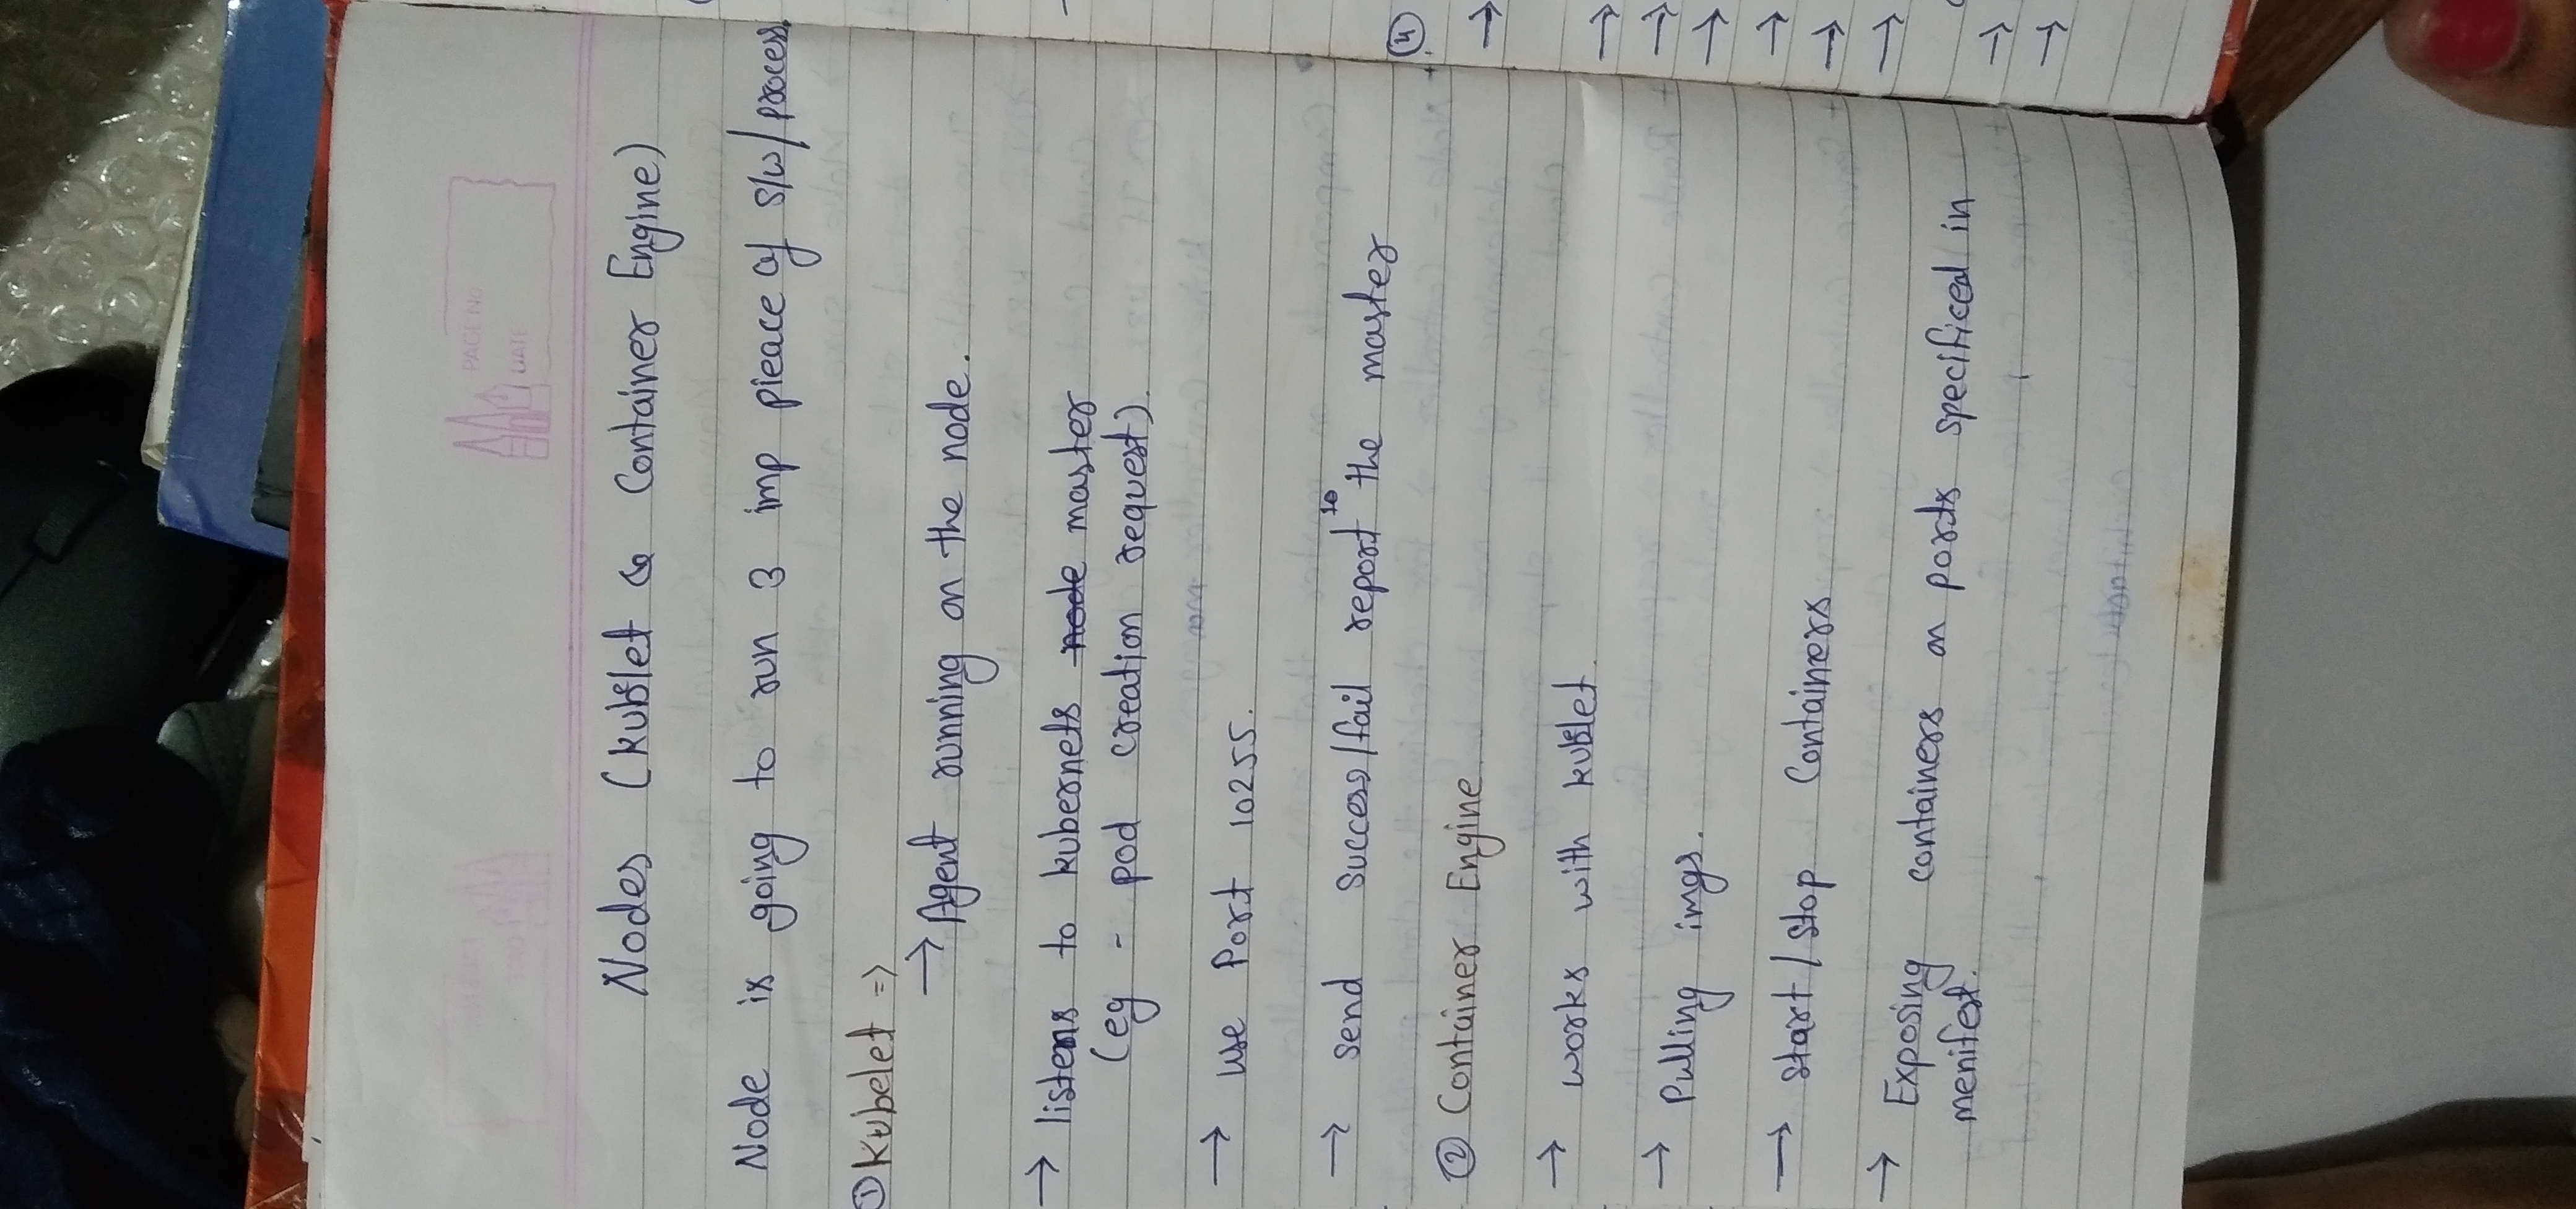 PAGE No
DATE
Nodes (kublet & Container Engine)
Node is going to run 3 imp pieace of s/w/process.
① Kubelet =>
→ Agent running on the node.
→ listens to kubernets node master
(eg - pod creation request).
→ use Port 10255.
→ send success/fail report to the master
② Container Engine
→ works with kublet.
→ Pulling imgs.
→ start/stop Containers
→ Exposing containers on ports specificed in
menifest.
④
→
→
→
→
→
→
→
→
→